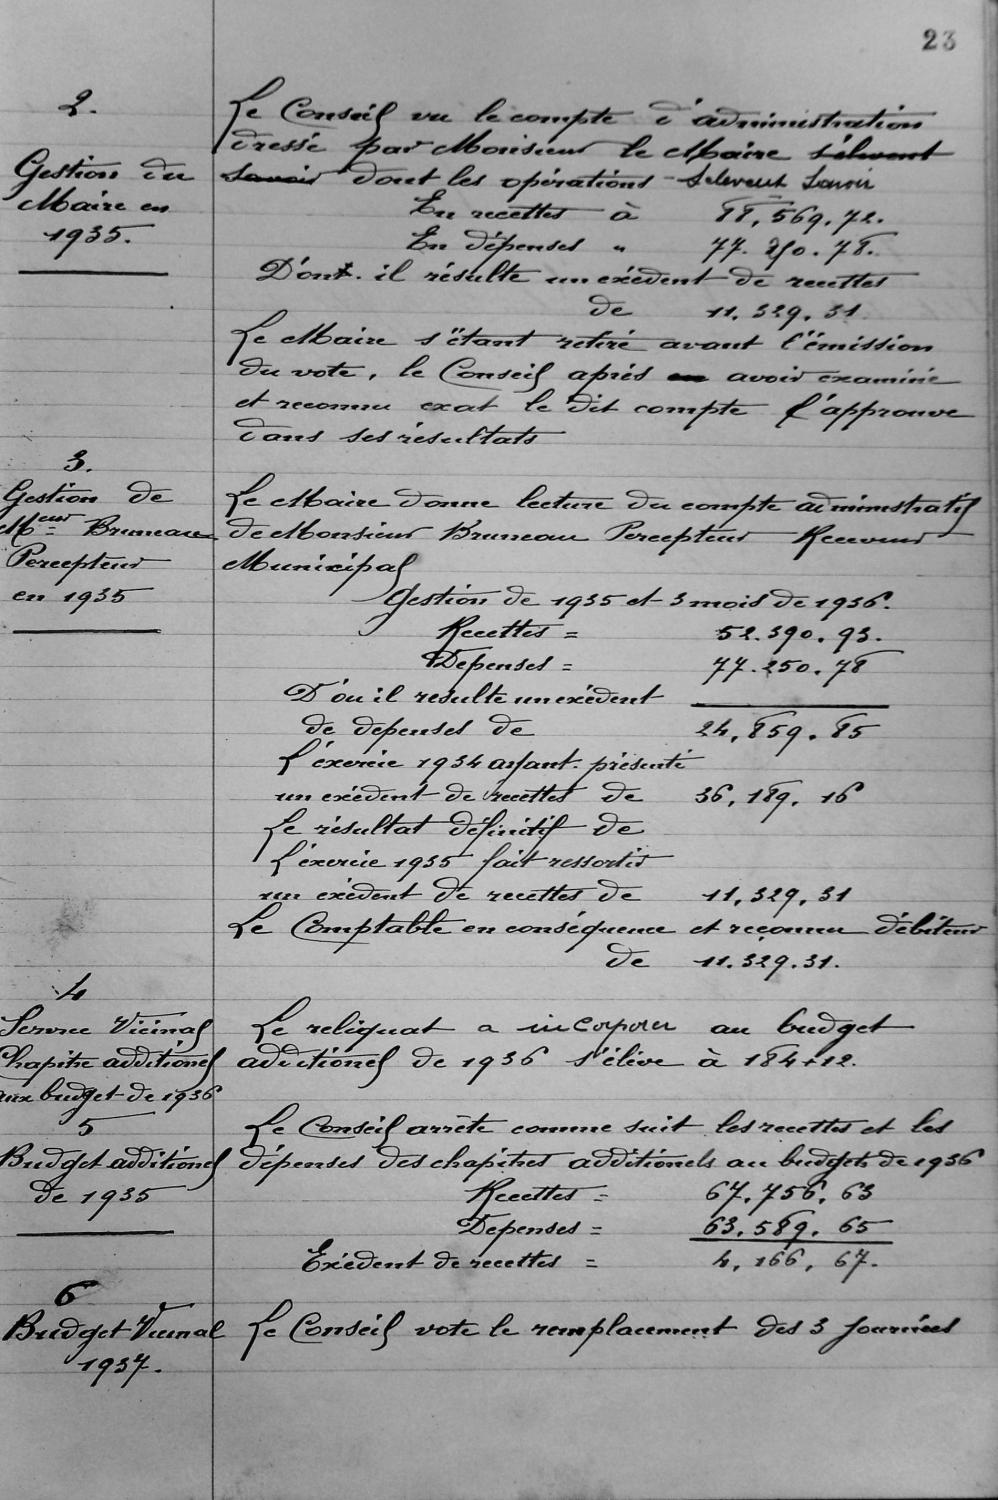 23
2.
Gestion du
Maire en
1935.
Le Conseil vu le compte d'administration
dressé par Monsieur le Maire s'élevent
savoir dont les opérations s'elevent savoir
En recettes à 88,569.72.
En dépenses " 77.250.78.
D'ont il résulte un exédent de recettes
de 11.329.31
Le Maire s'étant retiré avant l'émission
du vote, le Conseil aprés en avoir examiné
et reconnu exat le dit compte l'approuve
dans ses résultats
3.
Gestion de
Meur Bruneau
Percepteur
en 1935
Le Maire donne lecture du compte administratif
de Monsieur Bruneau Percepteur Receveur
Municipal
Gestion de 1935 et 3 mois de 1936.
Recettes = 52.390.93.
Depenses = 77.250.78
D'ou il resulte un exédent
de depenses de 24,859.85
L'éxercie 1934 ayant présenté
un exédent de recettes de 36,189,16
Le résultat définitif de
L'éxercie 1935 fait ressortir
un exédent de recettes de 11,329,31
Le Comptable en conséquence et reconnu débiteur
de 11.329.31.
4
Service Vicinal
Chapitre additionel
aux budget de 1936
Le reliquat a incorporer au budget
additionel de 1936 s'élève à 184+12.
5
Budget additionel
de 1935
Le Conseil arrête comme suit les recettes et les
dépenses des chapitres additionels au budget de 1936
Recettes = 67.756,63
Depenses = 63.589.65
Exédent de recettes = 4,166,67.
6
Budget Vicinal
1937.
Le Conseil vote le remplacement des 3 journées